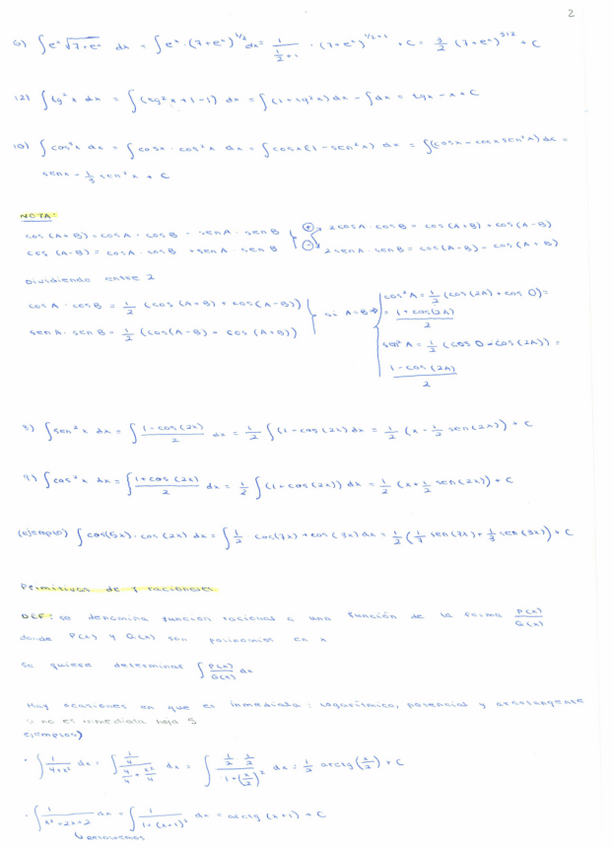 2
6) ∫eˣ√7+eˣ dx = ∫eˣ·(7+eˣ)^1/2 dx = 1/(1/2+1) · (7+eˣ)^1/2+1 + C = 3/2 (7+eˣ)^3/2 + C
12) ∫tg²x dx = ∫(tg²x+1-1) dx = ∫(1+tg²x)dx - ∫dx = tgx - x + C
10) ∫cos³x dx = ∫cosx · cos²x dx = ∫cosx(1-sen²x) dx = ∫(cosx - cosx sen²x)dx =
senx - 1/3 sen³x + C
NOTA:
cos (A+B) = cosA · cosB - senA · senB } ⊕ 2cosA · cosB = cos (A+B) + cos(A-B)
cos (A-B) = cosA · cosB + senA · senB } ⊖ 2 senA · senB = cos(A-B) - cos (A+B)
Dividiendo entre 2
cosA · cosB = 1/2 (cos (A+B) + cos(A-B))
senA · senB = 1/2 (cos(A-B) - cos (A+B))
si A=B ⇒
cos²A = 1/2 (cos(2A) + cos 0) =
= (1+cos(2A))/2
sen²A = 1/2 (cos 0 - cos(2A)) =
(1-cos(2A))/2
8) ∫sen²x dx = ∫(1-cos(2x))/2 dx = 1/2 ∫(1-cos(2x)dx = 1/2 (x - 1/2 sen(2x)) + C
9) ∫cos²x dx = ∫(1+cos(2x))/2 dx = 1/2 ∫(1+cos(2x)) dx = 1/2 (x + 1/2 sen(2x)) + C
(ejemplo) ∫cos(5x)·cos(2x) dx = ∫1/2 cos(7x) + cos(3x)dx = 1/2 (1/7 sen(7x) + 1/3 sen(3x)) + C
Primitivas de f racionales
DEF: se denomina función racional a una función de la forma P(x)/Q(x)
donde P(x) y Q(x) son polinomios en x
se quiere determinar ∫P(x)/Q(x) dx
Hay ocasiones en que es inmediata: logarítmica, potencial y arcotangente
si no es inmediata hoja 5
ejemplos)
· ∫1/(4+x²) dx = ∫(1/4)/(4/4 + x²/4) dx = ∫(1/2 · 1/2)/(1+(x/2)²) dx = 1/2 arctg(x/2) + C
· ∫1/(x²+2x+2) dx = ∫1/(1+(x+1)²) dx = arctg (x+1) + C